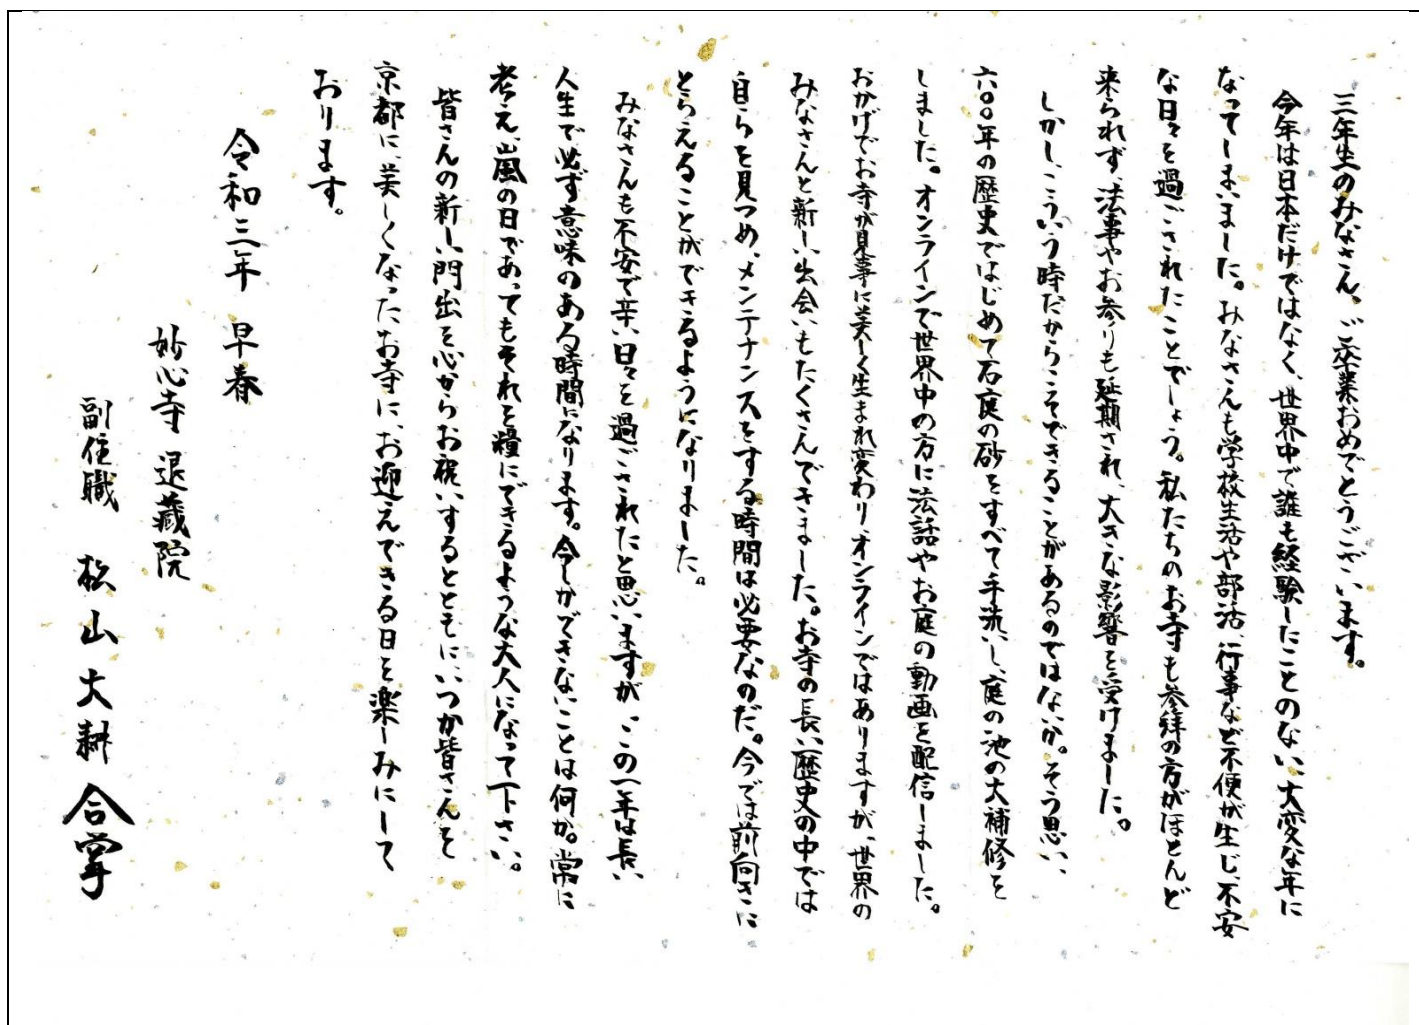 三年生のみなさん、ご卒業おめでとうございます。
今年は日本だけではなく、世界中で誰も経験したことのない、大変な年に
なってしまいました。みなさんも学校生活や部活、行事など不便が生じ、不安
な日々を過ごされたことでしょう。私たちのお寺も参拝の方がほとんど
来られず、法事やお参りも延期され、大きな影響を受けました。
しかし、こういう時だからこそできることがあるのではないか。そう思い、
六〇〇年の歴史ではじめて石庭の砂をすべて手洗いし、庭の池の大補修を
しました。オンラインで世界中の方に法話やお庭の動画を配信しました。
おかげでお寺が見事に美しく生まれ変わりオンラインではありますが、世界の
みなさんと新しい出会いもたくさんできました。お寺の長い歴史の中では
自らを見つめ、メンテナンスをする時間は必要なのだ。今では前向きに
とらえることができるようになりました。
みなさんも不安で辛い日々を過ごされたと思いますが、この一年は長い
人生で必ず意味のある時間になります。今しかできないことは何か。常に
考え、嵐の日であってもそれを糧にできるような大人になって下さい。
皆さんの新しい門出を心からお祝いするとともに、いつか皆さんを
京都に、美しくなったお寺に、お迎えできる日を楽しみにして
おります。
令和三年 早春
妙心寺 退蔵院
副住職 松山大耕 合掌